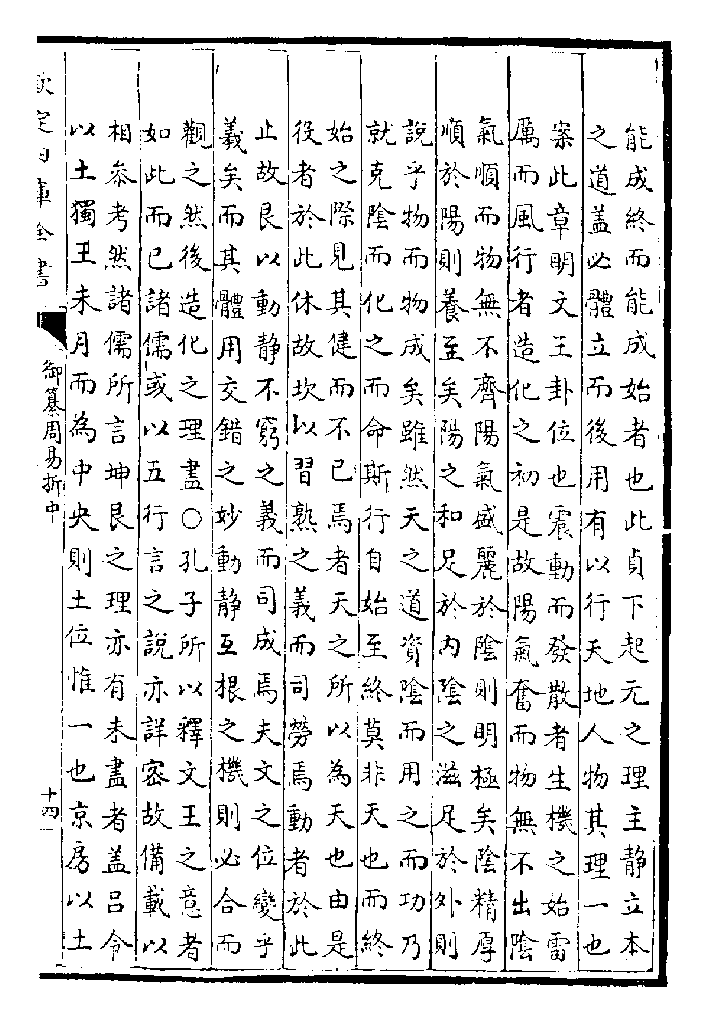 能成終而能成始者也此貞下起元之理主靜立本
之道盖必體立而後用有以行天地人物其理一也
案此章明文王卦位也震動而發散者生機之始雷
厲而風行者造化之初是故陽氣奮而物無不出陰
氣順而物無不齊陽氣盛麗於陰則明極矣陰精厚
順於陽則養至矣陽之和足於內陰之滋足於外則
說乎物而物成矣雖然天之道資陰而用之而功乃
就克陰而化之而命斯行自始至終莫非天也而終
始之際見其健而不已焉者天之所以為天也由是
役者於此休故坎以習熟之義而司勞焉動者於此
止故艮以動靜不窮之義而司成焉夫文之位變乎
羲矣而其體用交錯之妙動靜互根之機則必合而
觀之然後造化之理盡○孔子所以釋文王之意者
如此而已諸儒或以五行言之說亦詳密故備載以
相參考然諸儒所言坤艮之理亦有未盡者盖吕令
以土獨王未月而為中央則土位惟一也京房以土
欽定四庫全書
御纂周易折中
十四